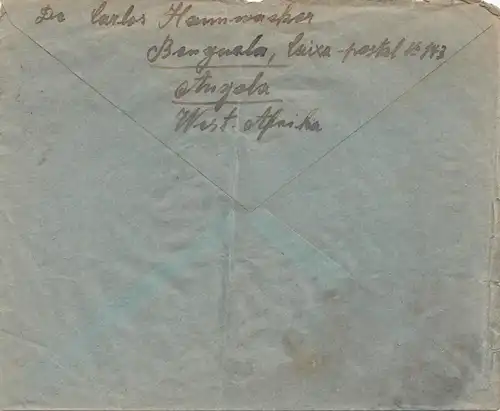 De Carlos Hannwacker
Benguela, Caixa-postal № 143
Angola
West-Afrika